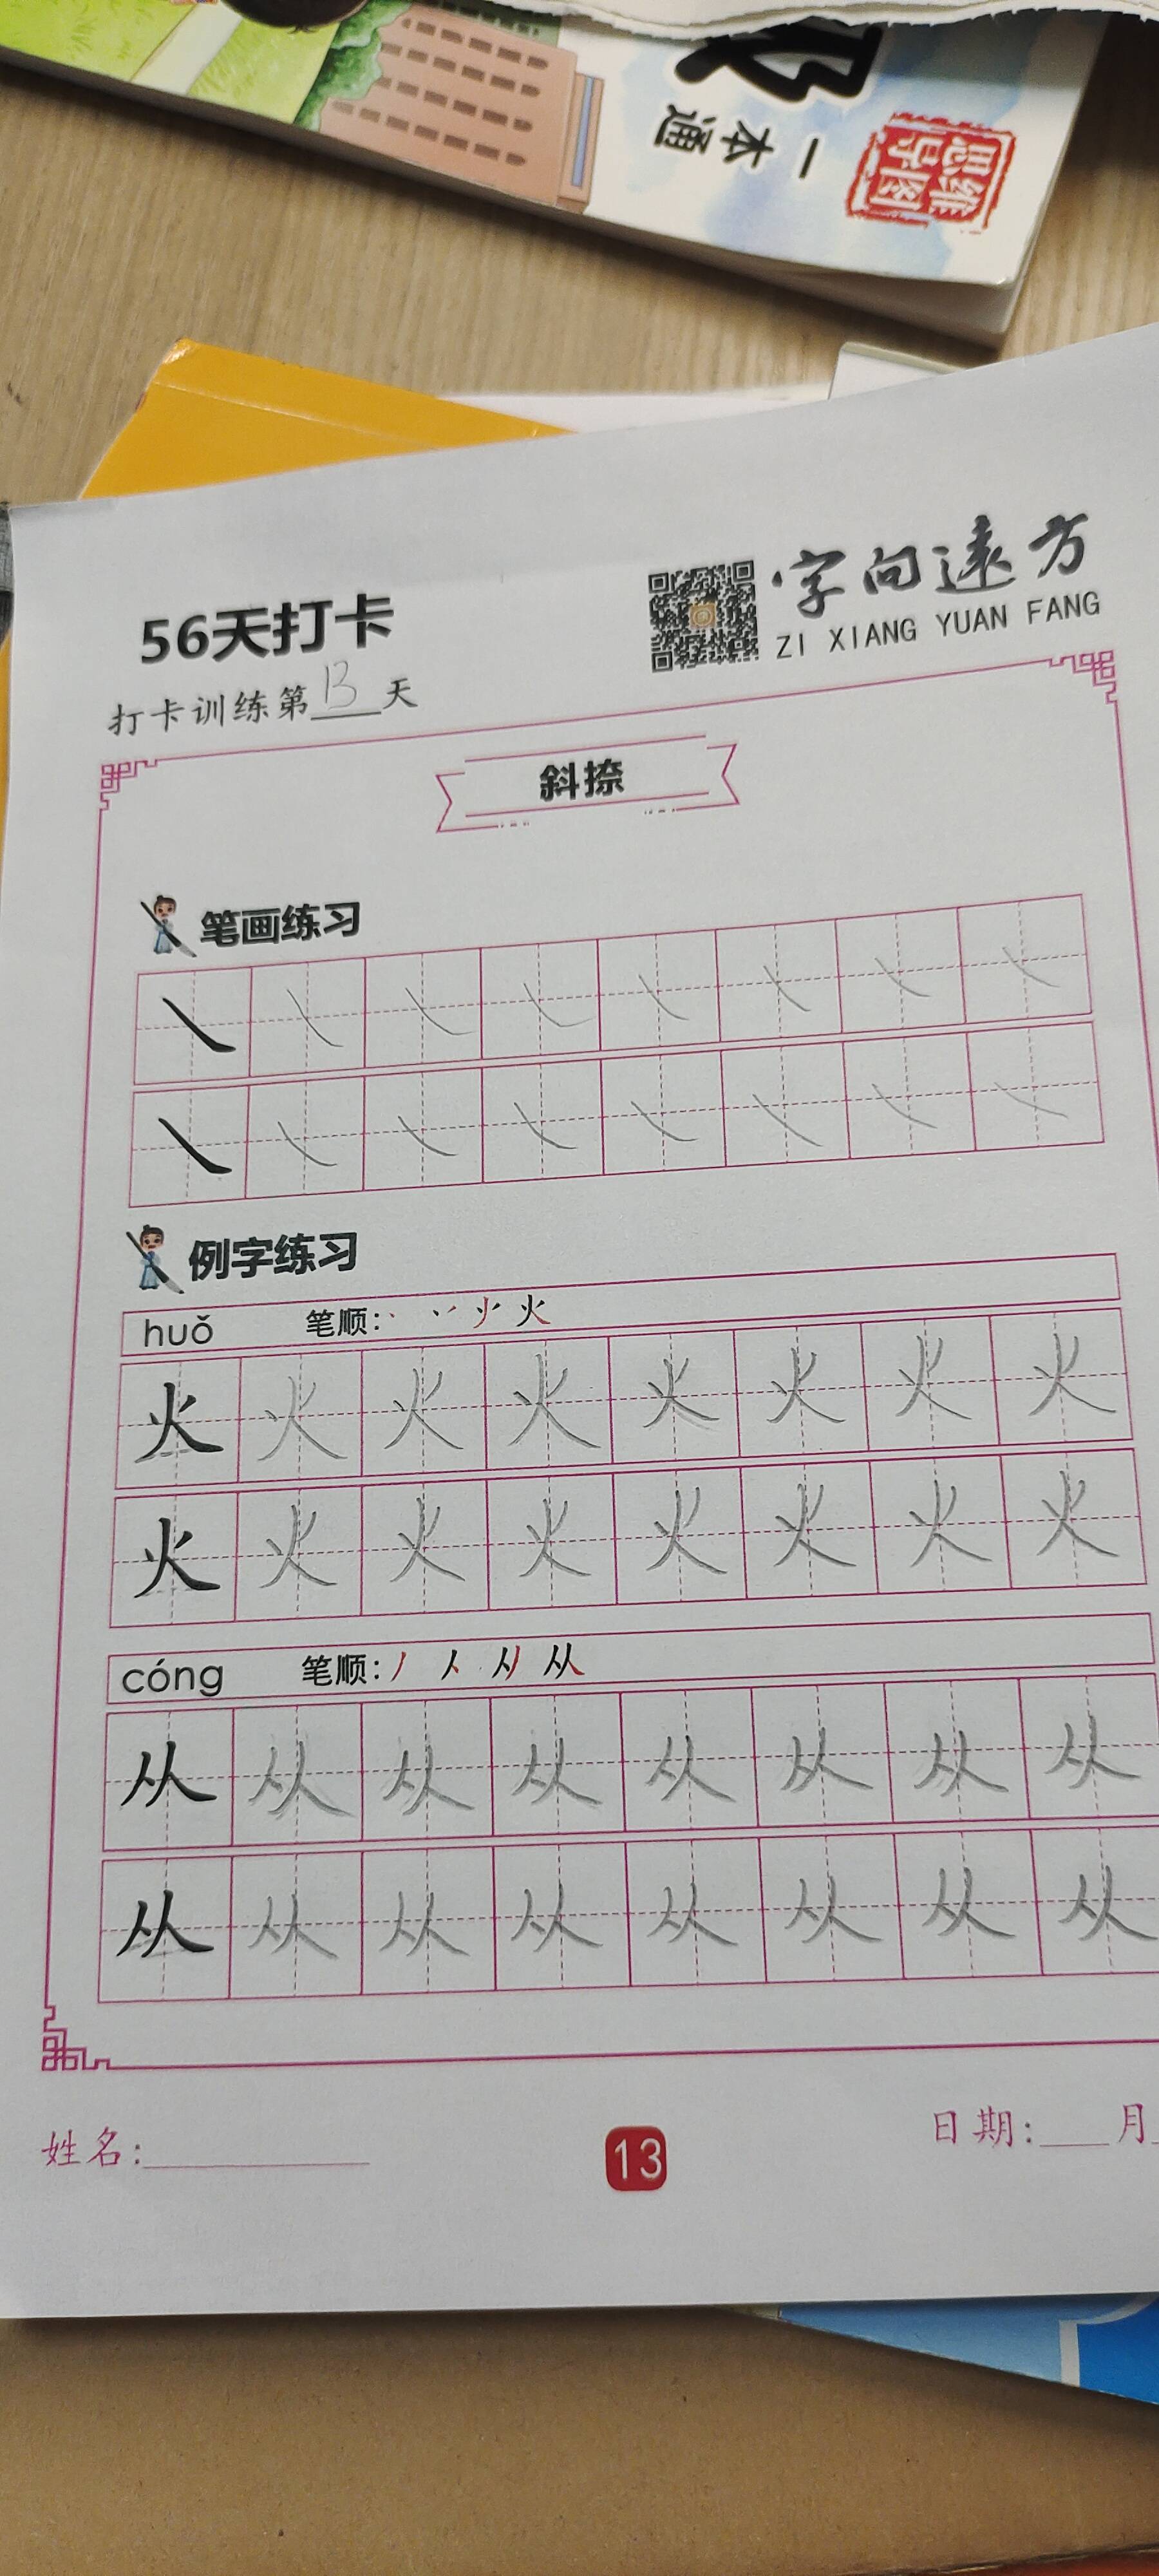 一本通
思维导图
56天打卡
字向遠方
ZI XIANG YUAN FANG
打卡训练第13天
斜捺
笔画练习
例字练习
huǒ 笔顺: 火
火 火 火 火 火 火 火 火
火 火 火 火 火 火 火 火
cóng 笔顺: 丿 人 从
从 从 从 从 从 从 从 从
从 从 从 从 从 从 从 从
姓名:
13
日期: 月